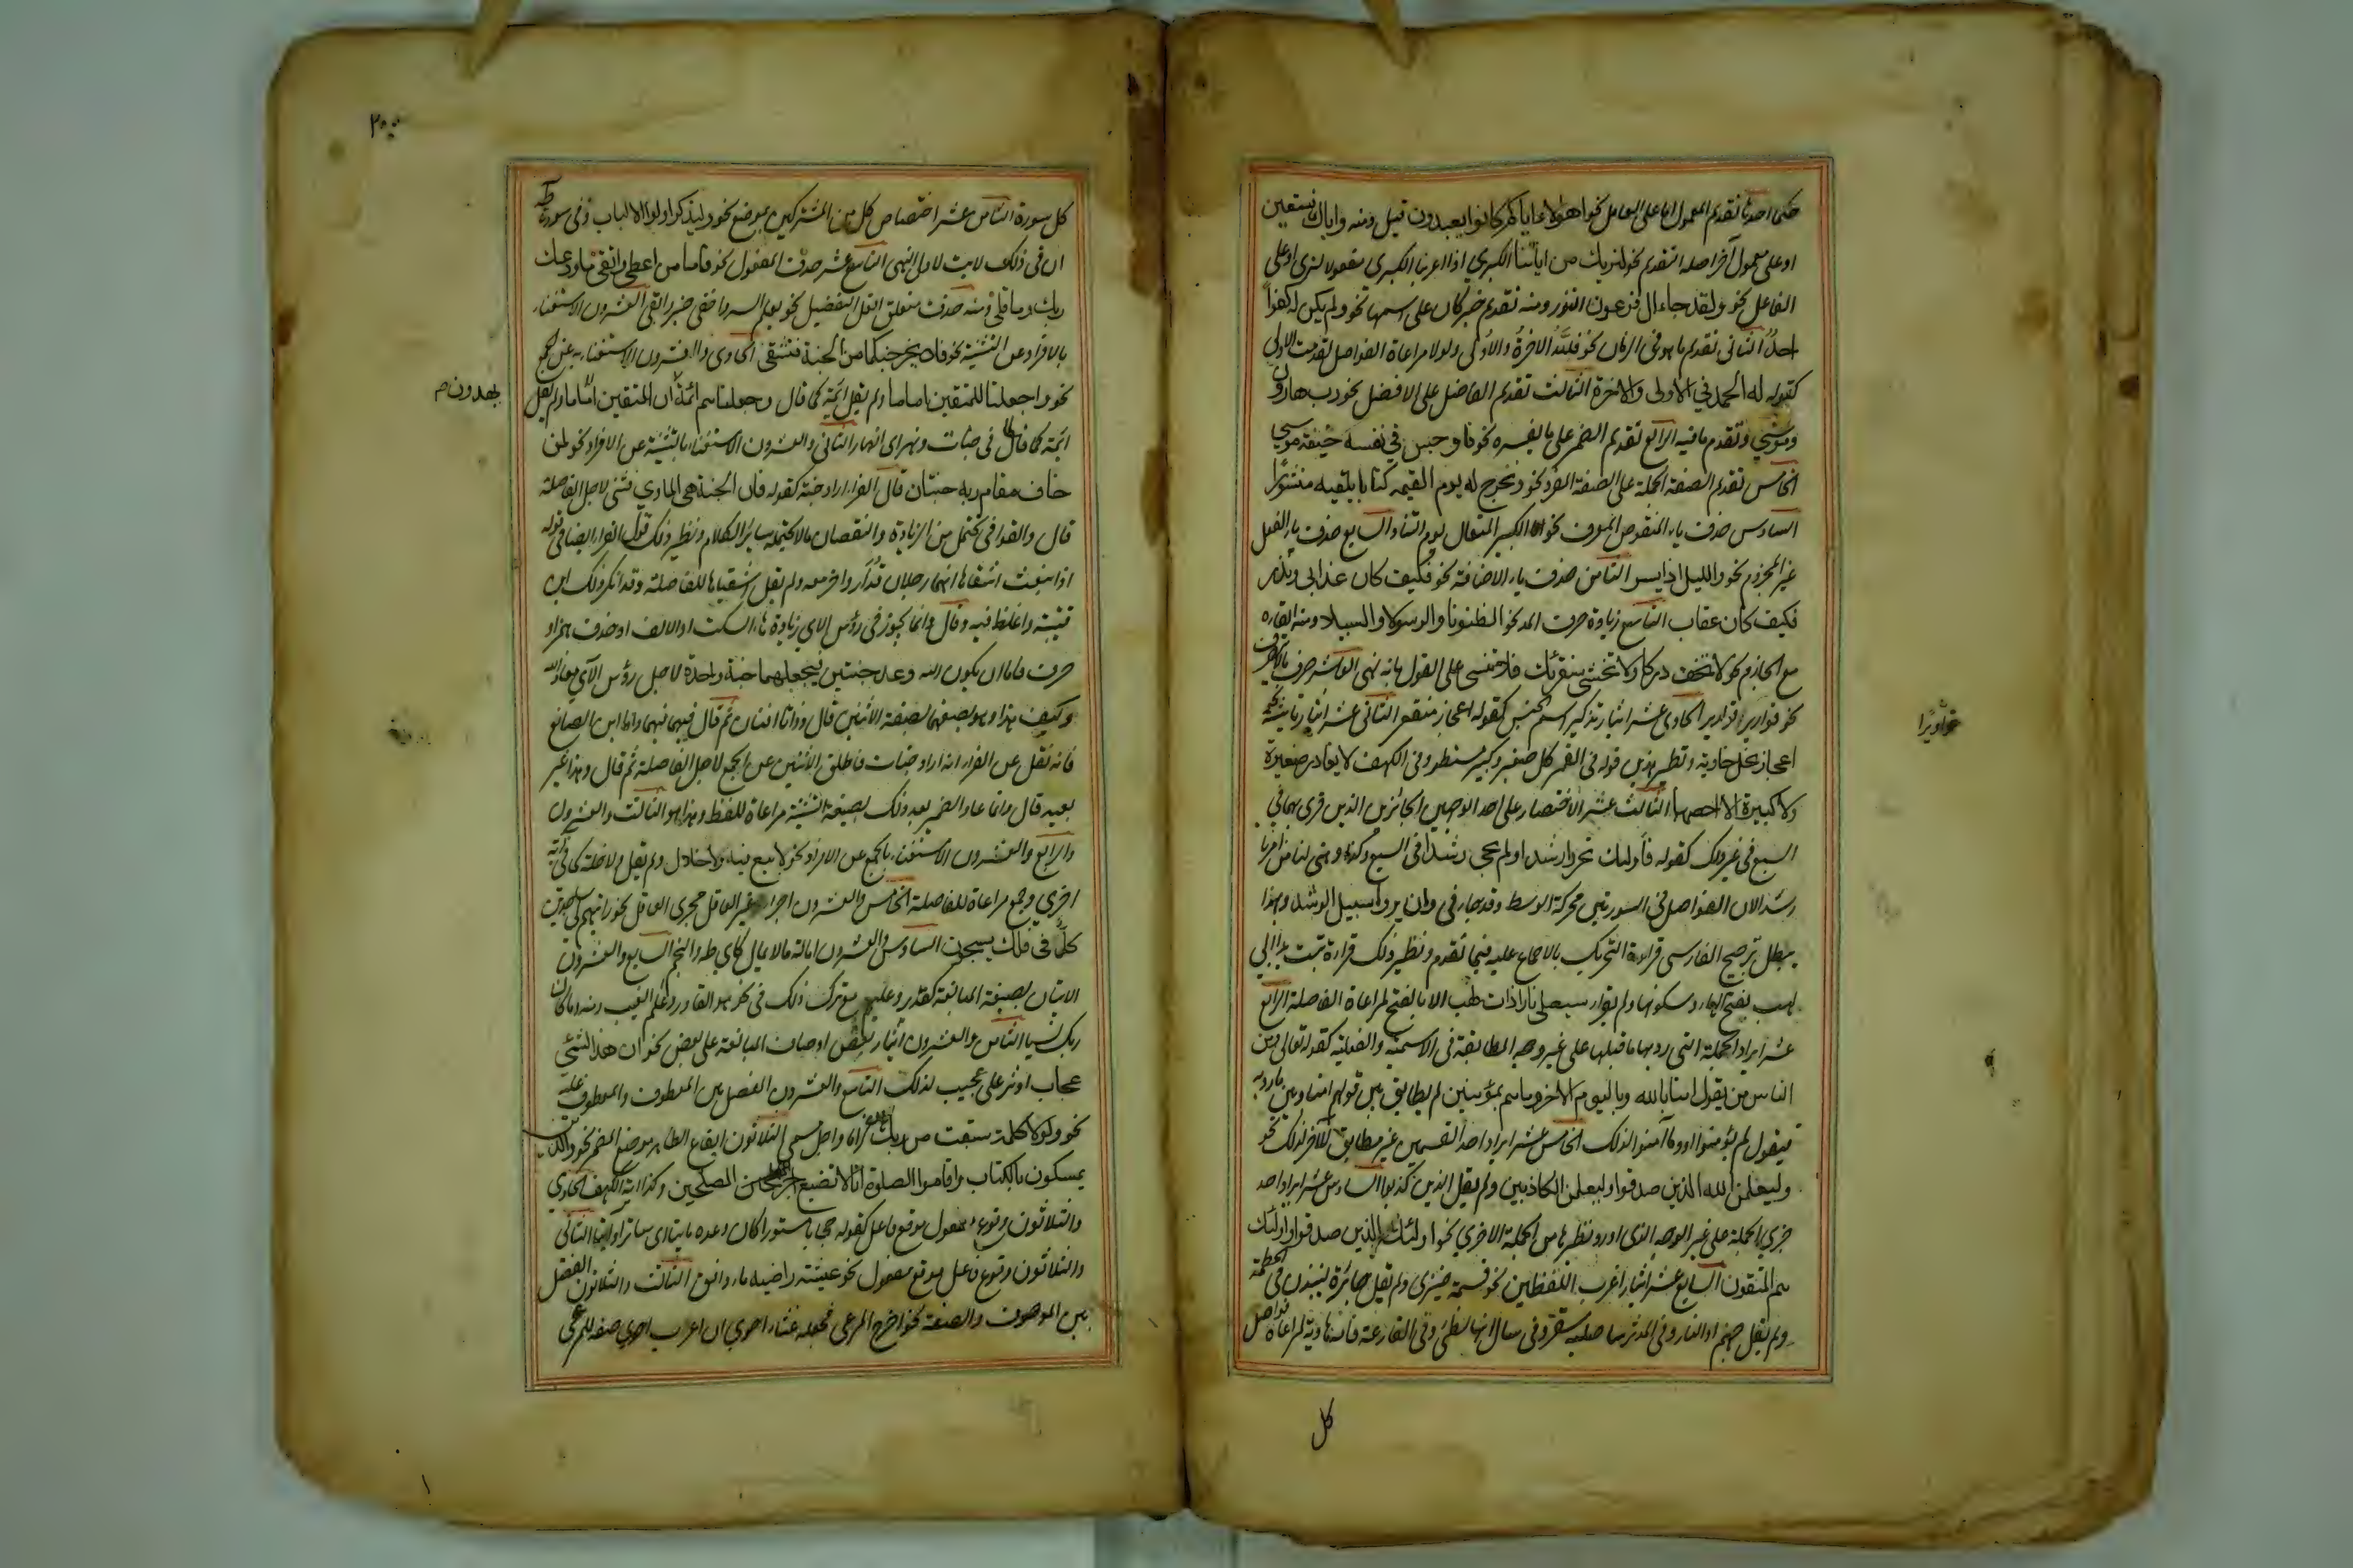 حكما احدها تقديم المعمول اما على العامل نحو اهؤلاء اياكم كانوا يعبدون قيل ومنه واياك نستعين
او على معمول آخر اصله التقديم نحو لنريك من اياتنا الكبرى اذا اعربنا الكبرى مفعولا لنرى او على
الفاعل نحو ولقد جاء ال فرعون النذر ومنه تقديم خبر كان على اسمها نحو ولم يكن له كفوا
احد الثانى تقديم ما هو فى الزمان نحو فلله الاخرة والاولى ولولا مراعاة الفواصل لقدمت الاولى
كقوله له الحمد في الاولى والاخرة الثالث تقديم الفاضل على الافضل نحو رب هارون
وموسى وتقدم ما فيه الرابع تقديم الضمير على ما يفسره نحو فاوجس في نفسه خيفة موسى
الخامس تقديم الصفة الجملة على الصفة المفرد نحو ونخرج له يوم القيمة كتابا يلقيه منشورا
السادس حذف ياء المنقوص المعرف نحو الكبير المتعال يوم التناد السابع حذف ياء الفعل
غير المجزوم نحو والليل اذا يسر الثامن حذف ياء الاضافة نحو فكيف كان عذابى ونذر
فكيف كان عقاب التاسع زيادة حرف المد نحو الظنونا والرسولا والسبيلا ومنه ابقاءه
مع الجازم نحو لا تخف دركا ولا تخشى سنقرئك فلا تنسى على القول بانه نهى العاشر صرف ما لا ينصرف
نحو قوارير قوارير الحادى عشر ايثار تذكير اسم الجنس كقوله اعجاز نخل منقعر الثانى عشر ايثار تانيثه نحو
اعجاز نخل خاوية ونظير هذين قوله فى القمر كل صغير وكبير مستطر وفى الكهف لا يغادر صغيرة
ولا كبيرة الا احصيها الثالث عشر الاقتصار على احد الوجهين الجائزين الذين قرى بهما في
السبع فى غير ذلك كقوله فاولئك تحروا رشدا ولم يجى رشدا فى السبع وكذا وهيى لنا من امرنا
رشدا لان الفواصل فى السورتين محركة الوسط وقد جاء فى وان يروا سبيل الرشد وبهذا
يبطل ترجيح الفارسى قراءة التحريك بالاجماع عليه فيما تقدم ونظير ذلك قراءة تبت يدا ابي
لهب بفتح الهاء وسكونها ولم يقرا سيصلى نارا ذات لهب الا بالفتح لمراعاة الفاصلة الرابع
عشر ايراد الجملة التى رد بها ما قبلها على غير وجه المطابقة فى الاسمية والفعلية كقوله تعالى ومن
الناس من يقول امنا بالله وباليوم الاخر وما هم بمؤمنين لم يطابق بين قولهم امنا وبين ما رد به
فيقول لم يؤمنوا او وما آمنوا لذلك الخامس عشر ايراد احد القسمين غير مطابق للآخر لذلك نحو
وليعلمن الله الذين صدقوا وليعلمن الكاذبين ولم يقل الذين كذبوا السادس عشر ايراد احد
جزءي الجملة على غير الوجه الذى اورد نظيرها من الجملة الاخرى نحو اولئك الذين صدقوا واولئك
هم المتقون السابع عشر ايثار اغرب اللفظين نحو قسمة ضيزى ولم يقل جائرة لينبذن فى الحطمة
ولم يقل جهنم او النار وفى المدثر ساصليه سقر وفى سال انها لظى وفى القارعة فامه هاوية لمراعاة فواصل
قواريرا
كل
٢٠٠
كل سورة الثامن عشر اختصاص كل من المشتركين بموضع نحو وليذكر اولوا الالباب وفى سورة طه
ان فى ذلك لايت لاولى النهى التاسع عشر حذف المفعول نحو فاما من اعطى واتقى ما ودعك
ربك وما قلى ومنه حذف متعلق افعل التفضيل نحو يعلم السر واخفى خير وابقى العشرون الاستغناء
بالافراد عن التثنية نحو فلا يخرجنكما من الجنة فتشقى الحادى والعشرون الاستغناء به عن الجمع
نحو واجعلنا للمتقين اماما ولم يقل ائمة كما قال وجعلناهم ائمة ان المتقين اماما ولم يقل
ائمة كما قال فى جنات ونهر اى انهار الثانى والعشرون الاستغناء بالتثنية عن الافراد نحو لمن
خاف مقام ربه جنتان قال الفراء اراد جنة كقوله فان الجنة هى الماوى فثنى لاجل الفاصلة
قال والقوافى تحتمل من الزيادة والنقصان ما لا يحتمله سائر الكلام ونظير ذلك قول الفراء ايضا فى قوله
اذ انبعث اشقاها انهما رجلان قدار واخر معه ولم يقل اشقياها للفاصلة وقد انكر ذلك ابن
قتيبة واغلظ فيه وقال وانما يجوز فى رؤس الاي زيادة هاء السكت او الالف او حذف همز او
حرف فاما ان يكون الله وعد جنتين فيجعلهما جنة واحدة لاجل رؤس الآي معاذ الله
وكيف هذا وهو يصفها بصفة الاثنين قال ذواتا افنان ثم قال فيهما فيهما واما ابن الصائغ
فانه نقل عن الفراء انه اراد جنات فاطلق الاثنين عن الجمع لاجل الفاصلة ثم قال وهذا غير
بعيد قال وانما عاد الضمير بعد ذلك بصيغة التثنية مراعاة للفظ وهذا هو الثالث والعشرون
والرابع والعشرون الاستغناء بالجمع عن الافراد نحو لا بيع فيه ولا خلال ولم يقل ولا خلة كما فى آية
اخرى وجمع مراعاة للفاصلة الخامس والعشرون اجراء غير العاقل مجرى العاقل نحو رايتهم لى ساجدين
كل فى فلك يسبحون السادس والعشرون امالة ما لا يمال كاي طه والنجم السابع والعشرون
الاتيان بصيغة المبالغة كقدير وعليم مع ترك ذلك فى نحو هو القادر وعالم الغيب ومنه وما كان
ربك نسيا الثامن والعشرون ايثار بعض اوصاف المبالغة على بعض نحو ان هذا لشئ
عجاب اوثر على عجيب لذلك التاسع والعشرون الفصل بين المعطوف والمعطوف عليه
نحو ولولا كلمة سبقت من ربك لكان لزاما واجل مسمى الثلاثون ايقاع الظاهر موضع المضمر نحو والذين
يمسكون بالكتاب واقاموا الصلوة انا لا نضيع اجر المصلحين وكذا اية الكهف الحادى
والثلاثون وقوع مفعول موقع فاعل كقوله حجابا مستورا كان وعده ماتيا اى ساترا واتيا الثانى
والثلاثون وقوع فاعل موقع مفعول نحو عيشة راضية ماء دافق الثالث والثلاثون الفصل
بين الموصوف والصفة نحو اخرج المرعى فجعله غثاء احوى ان اعرب احوى صفة للمرعى